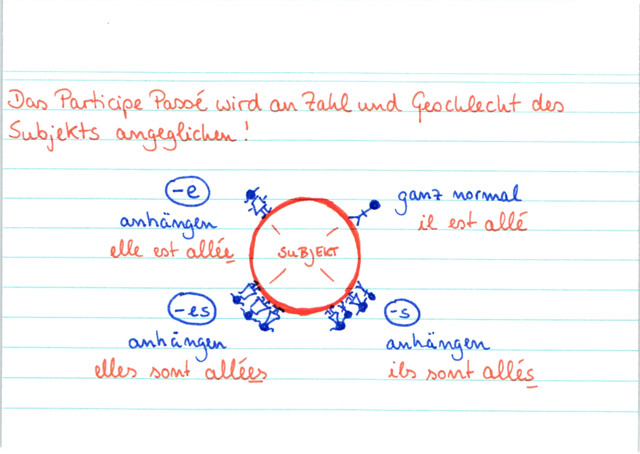 Das Participe Passé wird an Zahl und Geschlecht des
Subjekts angeglichen!
-e
anhängen
elle est allée
ganz normal
il est allé
SUBJEKT
-es
anhängen
elles sont allées
-s
anhängen
ils sont allés